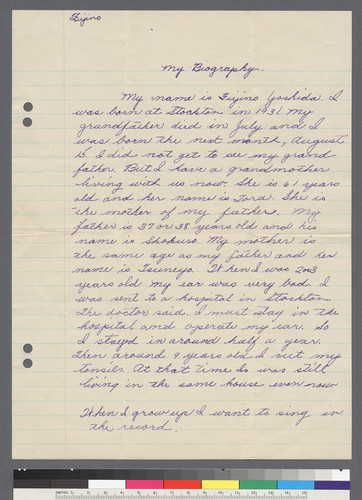 Fujino
My Biography.
My name is Fujino Yoshida. I
was born at Stockton in 1931. My
grandfather died in July and I
was born the next month, August
15. I did not get to see my grand
father. But I have a grandmother
living with us now. She is 61 years
old and her name is Tora. She is
the mother of my father. My
father is 37 or 38 years old and his
name is My mother is
the same age as my father and her
name is Tsuneyo. When I was 2 or 3
years old my ear was very bad. I
was sent to a hospital in Stockton.
The doctor said, I must stay in the
hospital and operate my ear. So
I stayd in around half a year.
Then around 9 years old I cut my
tonsels. At that time I was still
living in the same house even now.
When I grow up I want to sing in
the record.